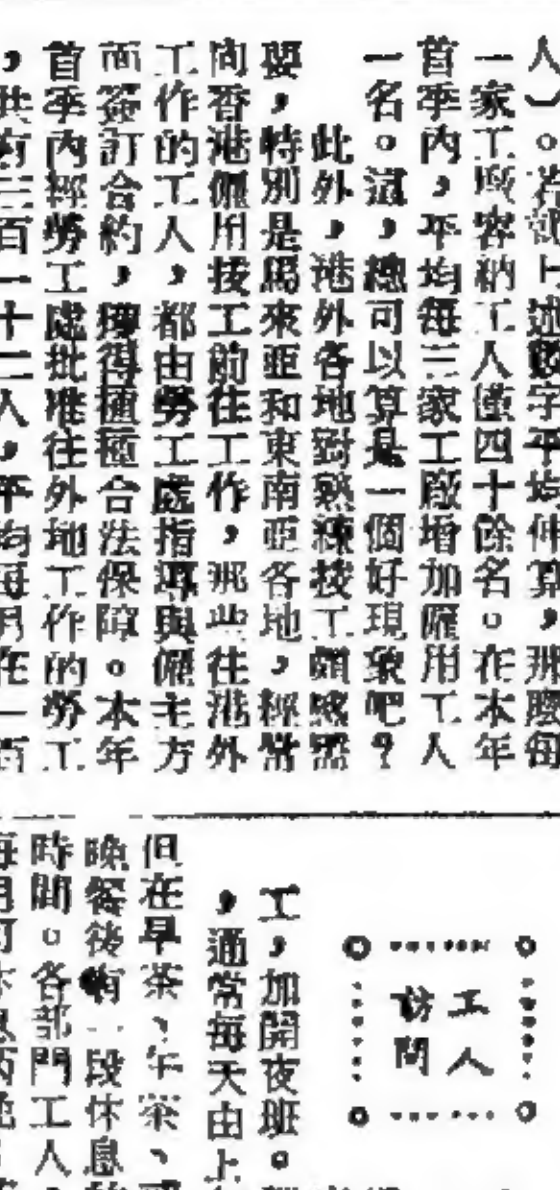 人）。若就上述數字平均伸算，那麼每
一家工廠容納工人僅四十餘名。在本年
首季內，平均每三家工廠增加僱用工人
一名。這，總可以算是一個好現象吧？
此外，港外各地對熟練技工頗感需
要，特別是馬來亞和東南亞各地，經常
向香港僱用技工前往工作，那些往港外
工作的工人，都由勞工處指導與僱主方
面簽訂合約，獲得種種合法保障。本年
首季內經勞工處批准往外地工作的勞工
，共有三百一十二人，平均每月在一百
工人
訪問
工，加開夜班。
，通常每天由上
但在早茶、午茶、
晚餐後有一段休息
時間。各部門工人，
每月可休息兩